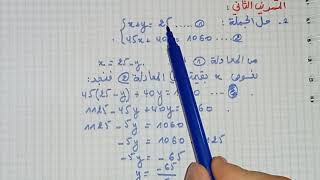 التمرين الثاني:
2- حل الجملة
x+y= 25 ..... ①
45x + 40 = 1060 .... ②
x = 25-y
من المعادلة ①
نعوض x بقيمتها المعادلة ② فنجد:
45(25-y) + 40y = 1060
1125 - 45y + 40y = 1060
1125 - 5y = 1060
-5y = 1060 - 1125
-5y = -65
y = -65